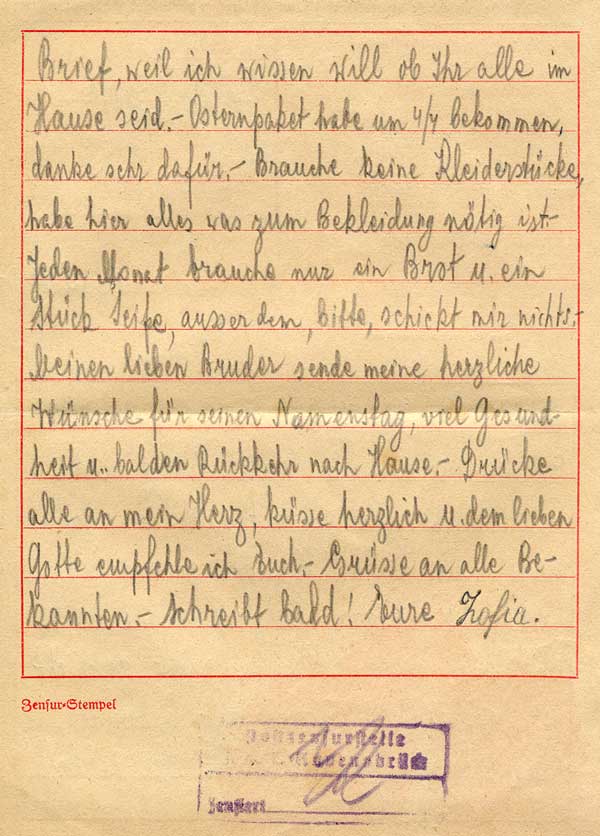 Brief, weil ich wissen will ob Ihr alle im
Hause seid.- Osternpaket habe um 4/7 bekommen,
danke sehr dafür.- Brauche keine Kleiderstücke,
habe hier alles was zum Bekleidung nötig ist.-
Jeden Monat brauche nur ein Brot u. ein
Stück Seife, ausser dem, bitte, schickt mir nichts.-
Meinen lieben Bruder sende meine herzliche
Wünsche für seinen Namenstag, viel Gesund-
heit u. balden Rückkehr nach Hause.- Drücke
alle an mein Herz, küsse herzlich u. dem lieben
Gotte empfehle ich Euch.- Grüsse an alle Be-
kannten.- Schreibt bald! Eure Zofia.
Zensur-Stempel
Postzensurstelle
Ravensbrück
Zensiert